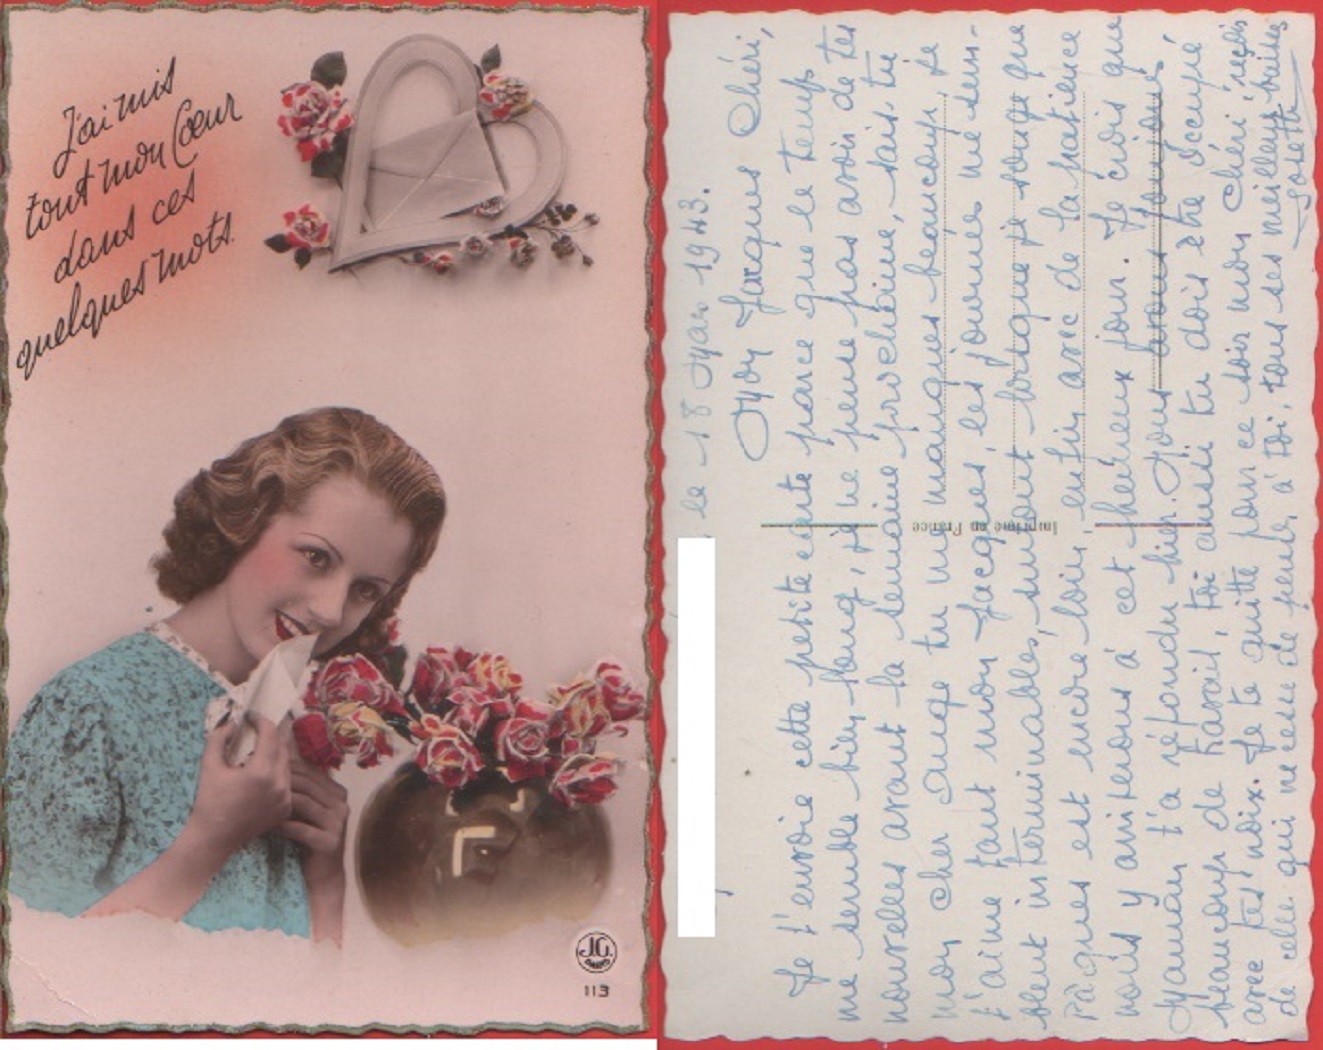 J'ai mis
tout mon Cœur
dans ces
quelques mots.
J.G.
PARIS
113
le 18 Mars 1943.
Mon Jacques Chéri,
Je t'envoie cette petite carte parce que le temps
me semble bien long, je ne pense pas avoir de tes
nouvelles avant la semaine prochaine, sais tu
mon cher Ange tu me manques beaucoup, Je
t'aime tant mon Jacques, les journées me sem-
blent interminables, surtout lorsque je songe que
Pâques est encore loin, enfin avec de la patience
nous y arriverons à cet heureux jour. Je crois que
Maman t'a répondu hier. Nous avons toujours
beaucoup de travail, toi aussi tu dois être occupé
avec tes noix. Je te quitte pour ce soir mon Chéri reçois
de celle qui ne cesse de penser à toi, tous ses meilleurs baisers
Josette
Imprimé en France